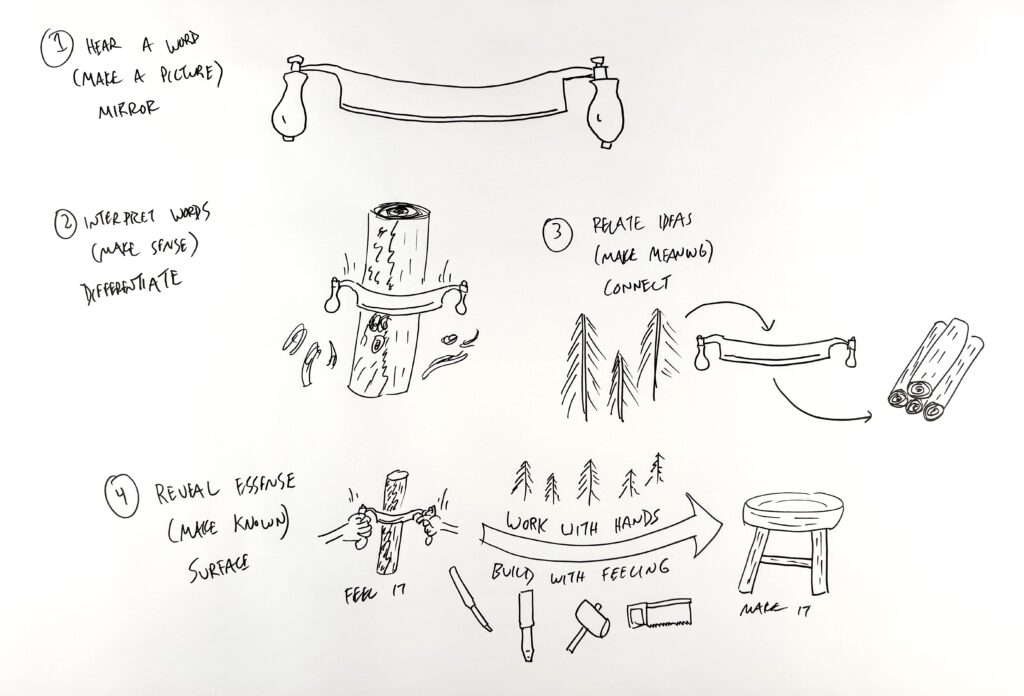 1 HEAR A WORD
(MAKE A PICTURE)
MIRROR
2 INTERPRET WORDS
(MAKE SENSE)
DIFFERENTIATE
3 RELATE IDEAS
(MAKE MEANING)
CONNECT
4 REVEAL ESSENSE
(MAKE KNOWN)
SURFACE
FEEL IT
WORK WITH HANDS
BUILD WITH FEELING
MAKE IT